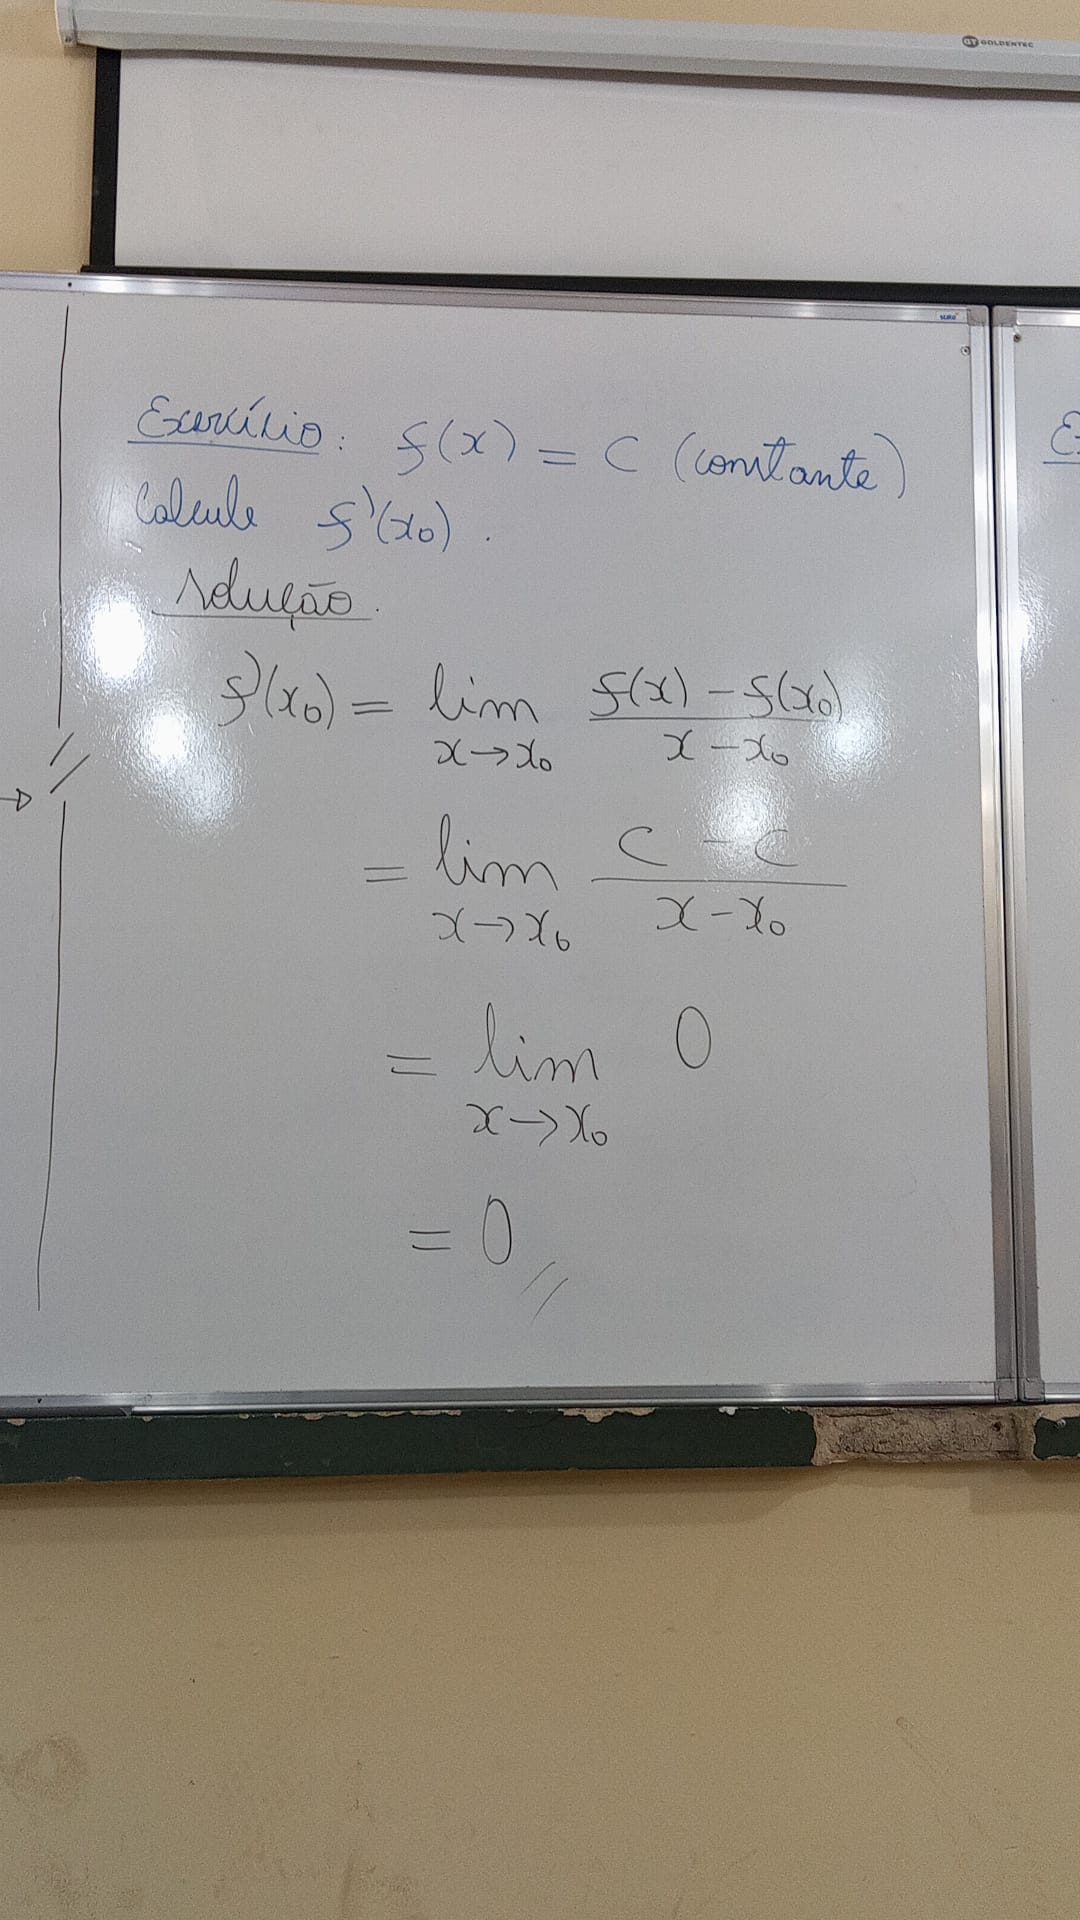 GT GOLDENTEC
Exercício: f(x) = C (constante)
Calcule f'(x₀).
solução.
f'(x₀) = lim f(x) - f(x₀)
x→x₀ x - x₀
= lim C - C
x→x₀ x - x₀
= lim 0
x→x₀
= 0 //